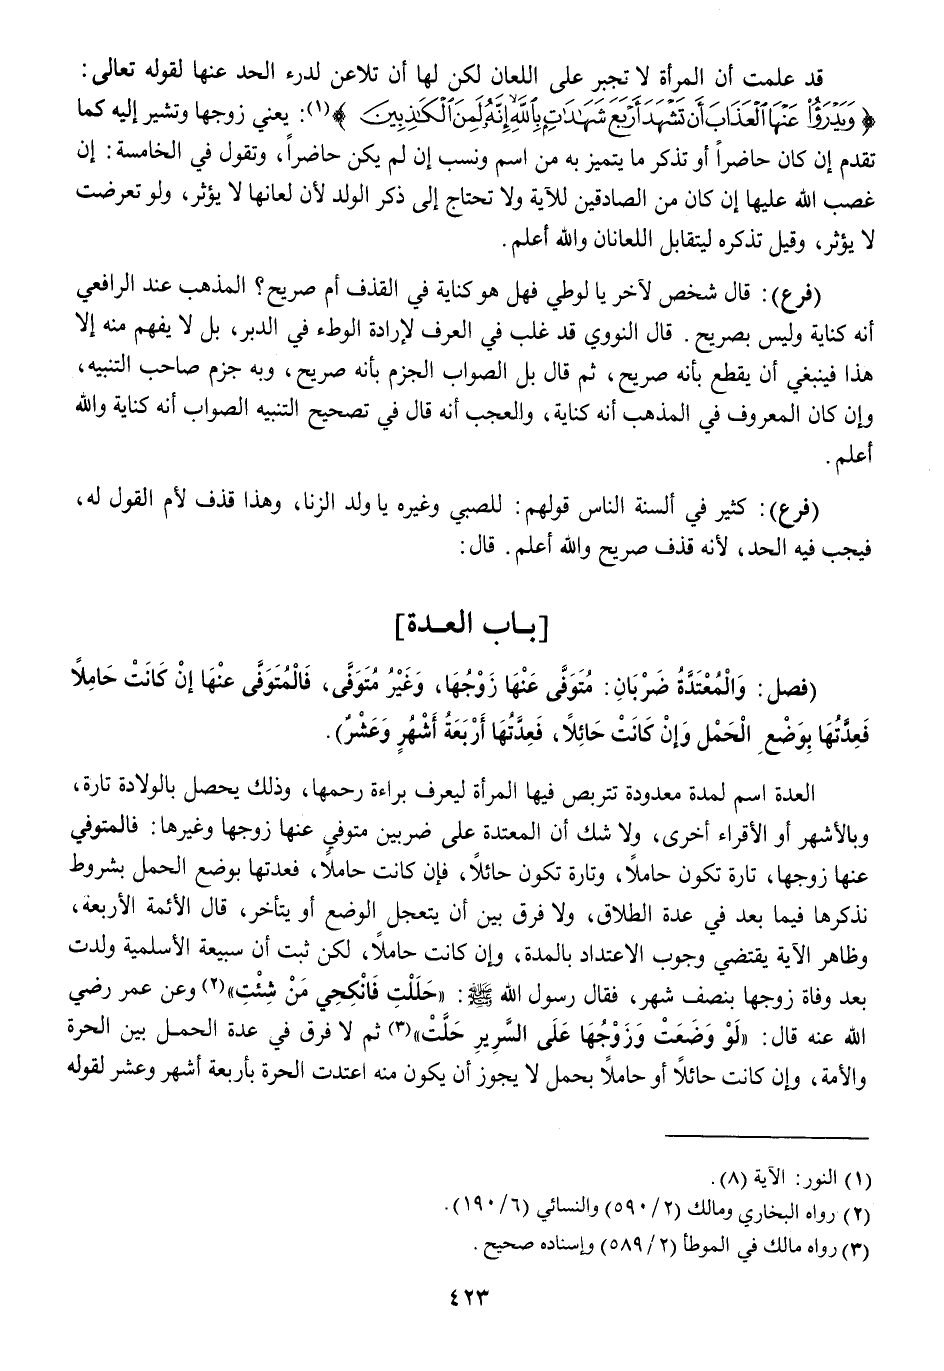 قد علمت أن المرأة لا تجبر على اللعان لكن لها أن تلاعن لدرء الحد عنها لقوله تعالى:
﴿وَيَدْرَؤُا عَنْهَا الْعَذَابَ أَن تَشْهَدَ أَرْبَعَ شَهَادَاتٍ بِاللَّهِ إِنَّهُ لَمِنَ الْكَاذِبِينَ﴾(١): يعني زوجها وتشير إليه كما
تقدم إن كان حاضراً أو تذكر ما يتميز به من اسم ونسب إن لم يكن حاضراً، وتقول في الخامسة: إن
غصب الله عليها إن كان من الصادقين للآية ولا تحتاج إلى ذكر الولد لأن لعانها لا يؤثر، ولو تعرضت
لا يؤثر، وقيل تذكره ليتقابل اللعانان والله أعلم.
(فرع): قال شخص لآخر يا لوطي فهل هو كناية في القذف أم صريح؟ المذهب عند الرافعي
أنه كناية وليس بصريح. قال النووي قد غلب في العرف لإرادة الوطء في الدبر، بل لا يفهم منه إلا
هذا فينبغي أن يقطع بأنه صريح، ثم قال بل الصواب الجزم بأنه صريح، وبه جزم صاحب التنبيه،
وإن كان المعروف في المذهب أنه كناية، والعجب أنه قال في تصحيح التنبيه الصواب أنه كناية والله
أعلم.
(فرع): كثير في ألسنة الناس قولهم: للصبي وغيره يا ولد الزنا، وهذا قذف لأم القول له،
فيجب فيه الحد، لأنه قذف صريح والله أعلم. قال:
[بـاب العـدة]
(فصل: وَالْمُعْتَدَّةُ ضَرْبَانِ: مُتَوَفَّى عَنْهَا زَوْجُهَا، وَغَيْرُ مُتَوَفَّى، فَالْمُتَوَفَّى عنْهَا إنْ كَانَتْ حَامِلًا
فَعِدَّتُهَا بِوَضْعِ الْحَمْل وَإنْ كَانَتْ حَائِلًا، فَعِدَّتُهَا أَرْبَعَةُ أَشْهُرٍ وَعَشْرٌ).
العدة اسم لمدة معدودة تتربص فيها المرأة ليعرف براءة رحمها، وذلك يحصل بالولادة تارة،
وبالأشهر أو الأقراء أخرى، ولا شك أن المعتدة على ضربين متوفي عنها زوجها وغيرها: فالمتوفي
عنها زوجها، تارة تكون حاملاً، وتارة تكون حائلاً، فإن كانت حاملاً، فعدتها بوضع الحمل بشروط
نذكرها فيما بعد في عدة الطلاق، ولا فرق بين أن يتعجل الوضع أو يتأخر، قال الأئمة الأربعة،
وظاهر الآية يقتضي وجوب الاعتداد بالمدة، وإن كانت حاملاً، لكن ثبت أن سبيعة الأسلمية ولدت
بعد وفاة زوجها بنصف شهر، فقال رسول الله ﷺ: «حَلَلْتِ فَانْكِحِي مَنْ شِئْتِ»(٢) وعن عمر رضي
الله عنه قال: «لَوْ وَضَعَتْ وَزَوْجُهَا عَلَى السَّرِيرِ حَلَّتْ»(٣) ثم لا فرق في عدة الحمـل بين الحرة
والأمة، وإن كانت حائلاً أو حاملاً بحمل لا يجوز أن يكون منه اعتدت الحرة بأربعة أشهر وعشر لقوله
(١) النور: الآية (٨).
(٢) رواه البخاري ومالك (٢/٥٩٠) والنسائي (٦/١٩٠).
(٣) رواه مالك في الموطأ (٢/٥٨٩) وإسناده صحيح.
٤٢٣